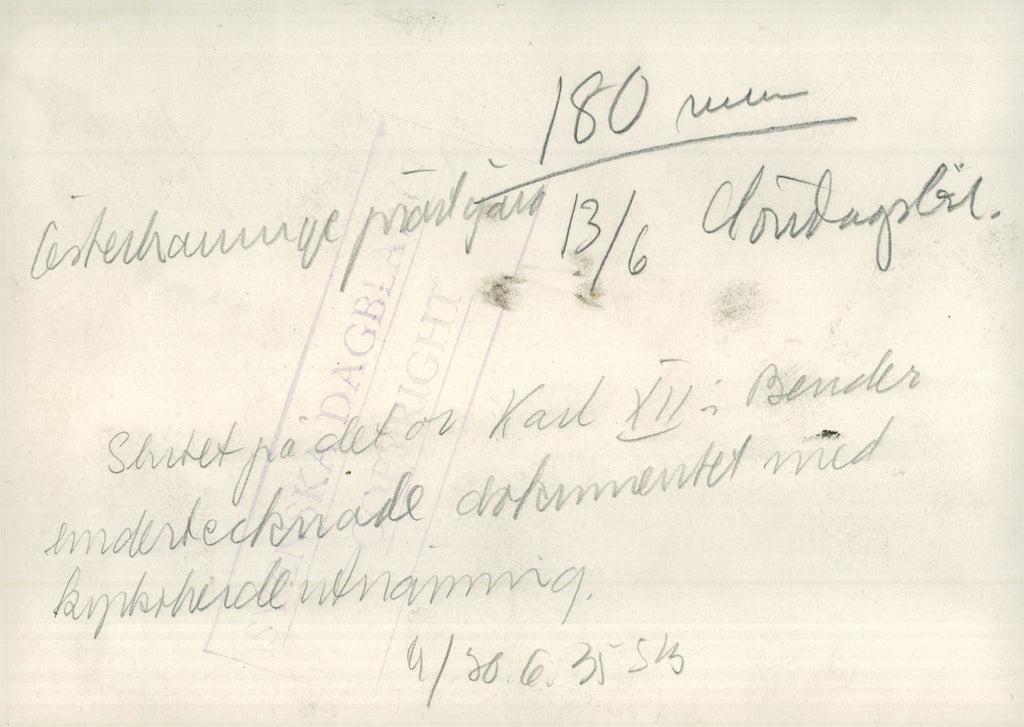 180 mm
Österhaninge prästgård 13/6 Söndagsbil.
Slutet på det av Karl XII i Bender
undertecknade dokumentet med
kyrkoherdeutnämning.
4/30.6.35 SvD
SVENSKA DAGBLADET
COPYRIGHT